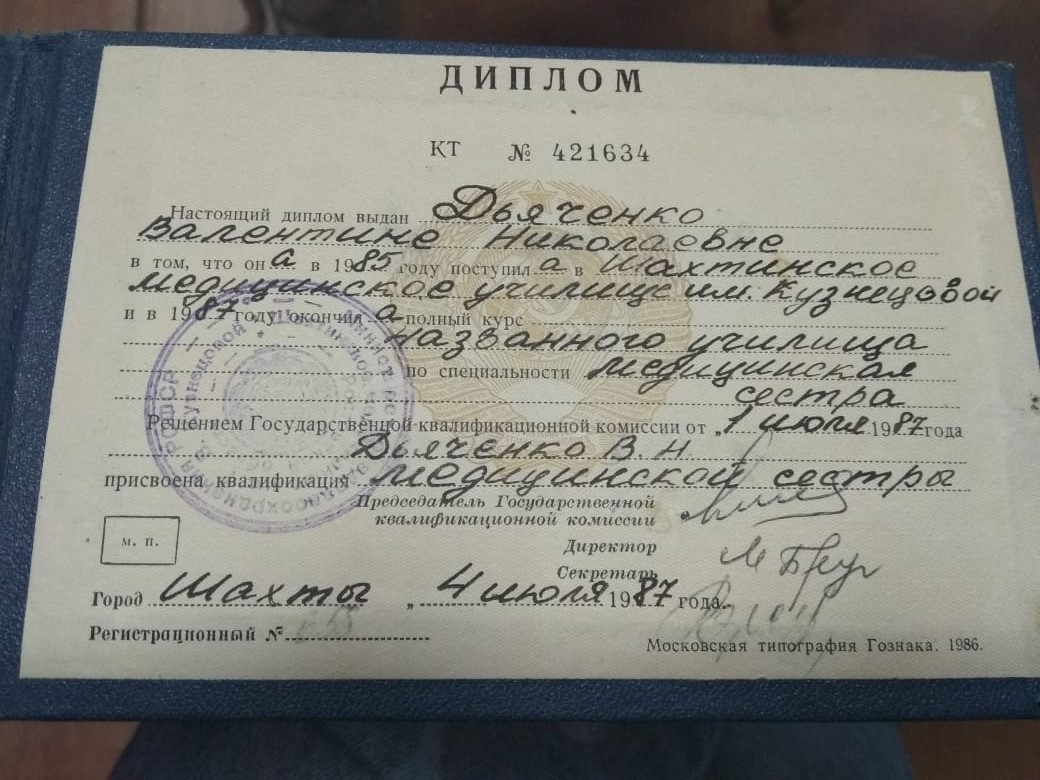 ДИПЛОМ
КТ № 421634
Настоящий диплом выдан Дьяченко
Валентине Николаевне
в том, что она в 1985 году поступила в Шахтинское
медицинское училище им. Кузнецовой
и в 1987 году окончила полный курс
названного училища
по специальности медицинская
сестра
Решением Государственной квалификационной комиссии от „1 июля 1987 года
Дьяченко В. Н.
присвоена квалификация медицинской сестры
Председатель Государственной
квалификационной комиссии
Директор
Секретарь
м. п.
Город Шахты „4 июля 1987 года.
Регистрационный №
Московская типография Гознака. 1986.